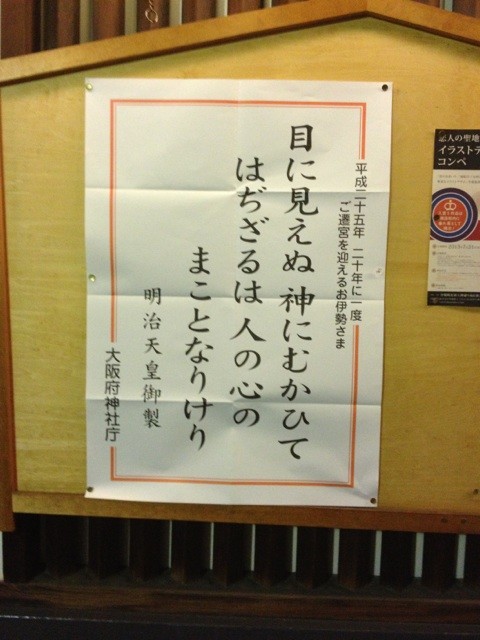 平成二十五年 二十年に一度
ご遷宮を迎えるお伊勢さま
目に見えぬ 神にむかひて
はぢざるは 人の心の
まことなりけり
明治天皇御製
大阪府神社庁
恋人の聖地
イラストデ
コンペ